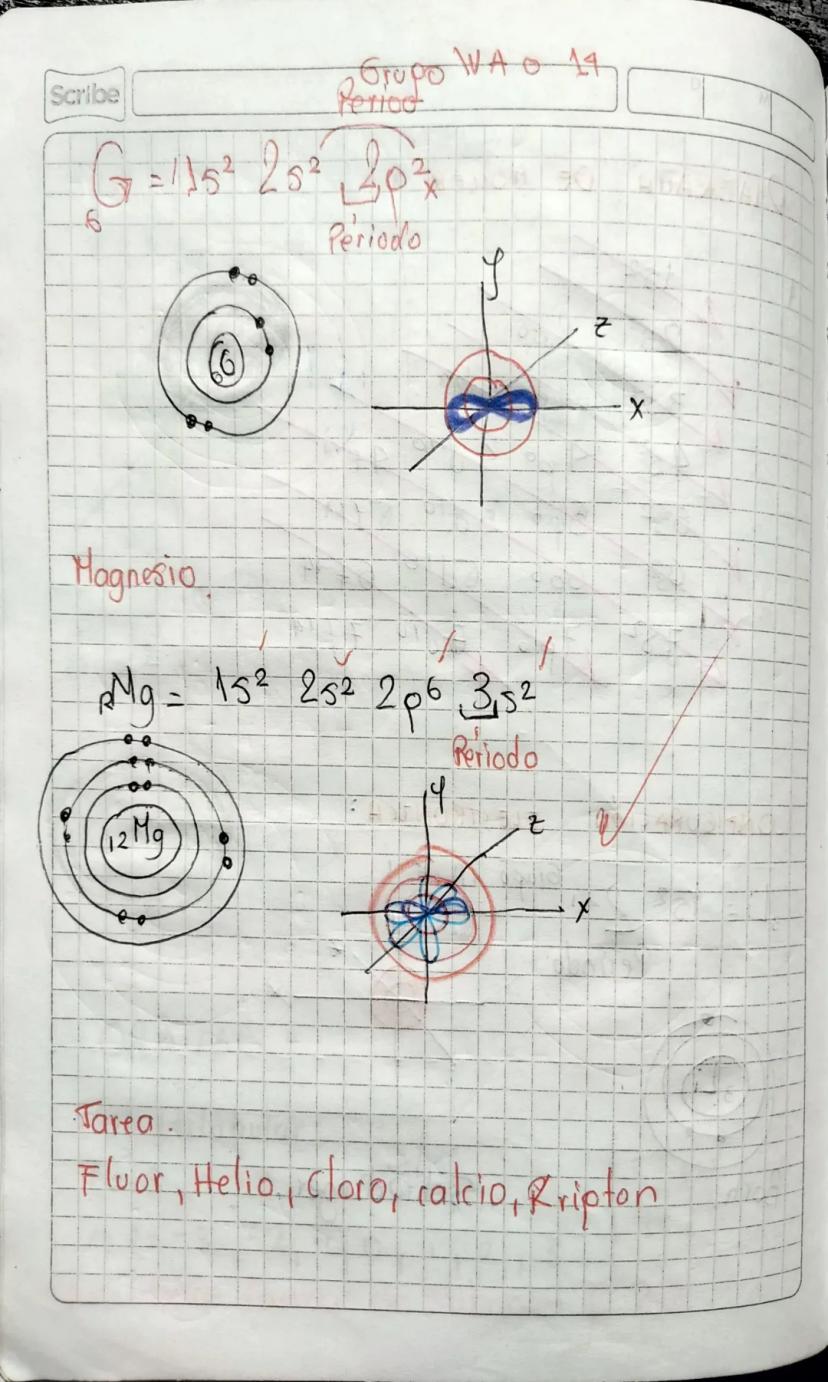 Grupo IVA o 14
Scribe
Period
₆G = 1s² 2s² 2p²x
Periodo
y
z
6G
x
Magnesio.
₁₂Mg = 1s² 2s² 2p⁶ 3s²
Periodo
y
z
12Mg
x
Tarea.
Fluor, Helio, Cloro, calcio, Kripton